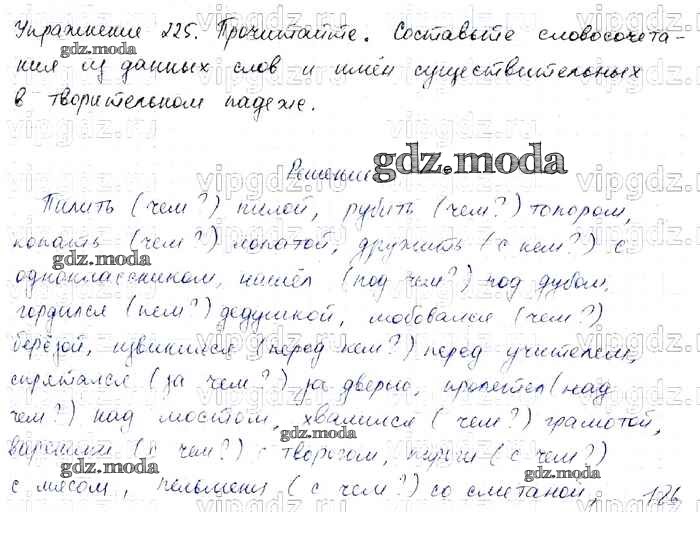 Упражнение 225. Прочитайте. Составьте словосочета-
ния из данных слов и имён существительных
в творительном падеже.
Решение
Пилить (чем?) пилой, рубить (чем?) топором,
копать (чем?) лопатой, дружить (с кем?) с
одноклассником, нашёл (под чем?) под дубом,
гордился (кем?) дедушкой, любовался (чем?)
берёзой, извинился (перед кем?) перед учителем,
спрятался (за чем?) за дверью, пролетел (над
чем?) над мостом, хвалился (чем?) грамотой,
вареники (с чем?) с творогом, пироги (с чем?)
с мясом, пельмени (с чем?) со сметаной,
126
gdz.moda
gdz.moda
gdz.moda
gdz.moda
gdz.moda
gdz.moda
gdz.moda
gdz.moda
vipgdz.ru